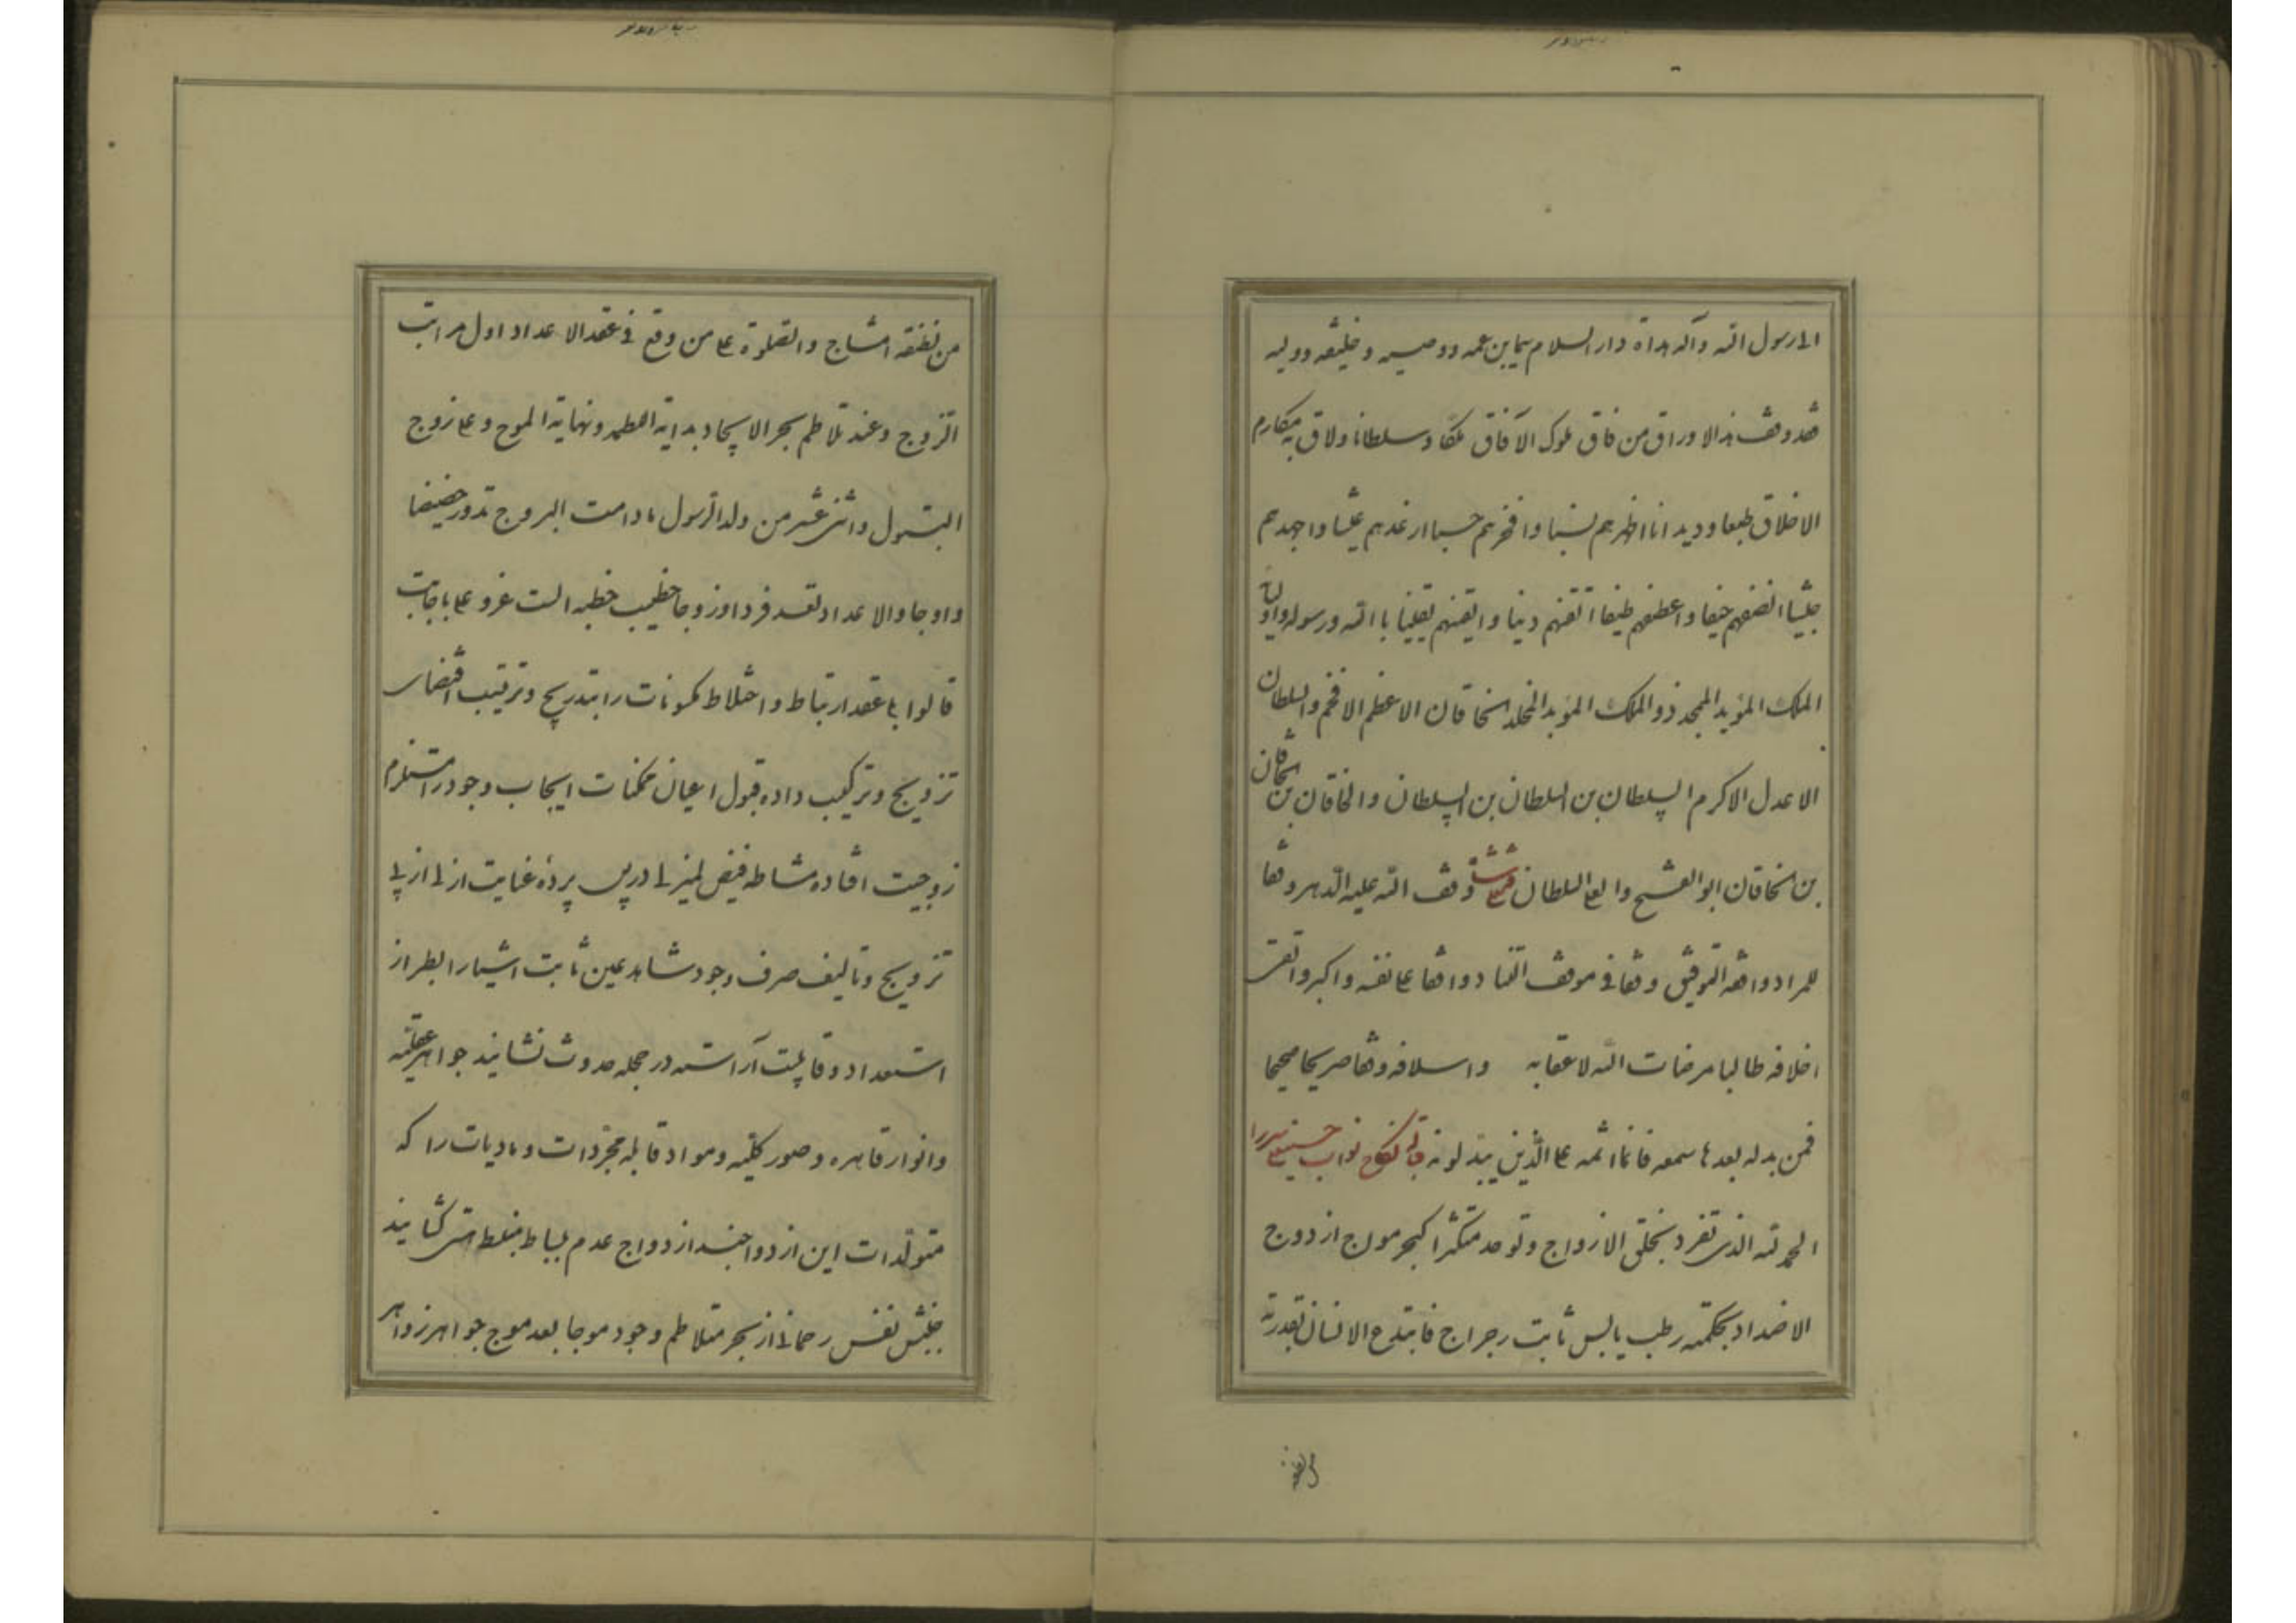 الی رسول الله و آله هداة دار السلام سیما بن عمه و وصیه و خلیفته و ولیه
فقد وقف هذالاوراق من فاق ملوک الآفاق ملکا و سلطانا و لاق به مکارم
الاخلاق طبعا و دیدانا اطهرهم نسبا و افخرهم حسبا ارغدهم عیشا و اجهدهم
جیشا انصفهم حیفا و اعطفهم طیفا اتقنهم دینا و ایقنهم یقینا باالله و رسوله و اولیائه
الملک المؤید الممجد ذو الملک المؤبد المخلد الخاقان الاعظم الافخم والسلطان
الاعدل الاکرم السلطان بن السلطان بن السلطان و الخاقان بن الخاقان
بن الخاقان ابو الفتح و العلی السلطان فتحعلیشاه وقف الله علیه الدهر وقفا
للمراد و افقه التوفیق وقفا فی موقف التناد واقفا علی نفسه و اکبر و اتقی
اخلافه طالبا مرضات الله لاعقابه و اسلافه وقفا صریحا صحیحا
فمن بدله بعد ما سمعه فانما اثمه علی الذین یبدلونه قباله نکاح نواب حسینعلی میرزا
الحمد لله الذی تفرد بخلق الازواج و توحد متکثرا کبحر مواج ازدوج
الاضداد بحکمته رطب یابس ثابت رجراج فابتدع الانسان بقدرته
من نطفة
من نطفة امشاج و الصلوة علی من وقع فی عقد الاعداد اول مراتب
الزوج و عند تلاطم بحر الایجاد بدایة القطر و نهایة الموج و علی زوج
البتول و اثنی عشر من ولد الرسول مادامت البروج تدور حضیضا
و اوجا و الاعداد تعد فردا و زوجا خطیب خطبه الست عزوعلا باجابت
قالوا بلی عقد ارتباط و اختلاط مکونات را بتدریج و ترتیب اقتضای
تزویج و ترکیب داده قبول اعیان ممکنات ایجاب وجود را مستلزم
زوجیت افتاده مشاطه فیض لم یزلی در پس پرده عنایت ازلی از پی
تزویج و تالیف صرف وجود شاهد عین ثابت اشیا را بطراز
استعداد و قابلیت آراسته در حجله حدوث نشانید جواهر عقلیه
و انوار قاهره و صور کلیه و مواد قابله مجردات و مادیات را که
متولدات این ازدواجند از دواج عدم بساط هستی کشانید
جنبش نفس رحمانی از بحر متلاطم وجود موجا بعد موج جواهر زواهر